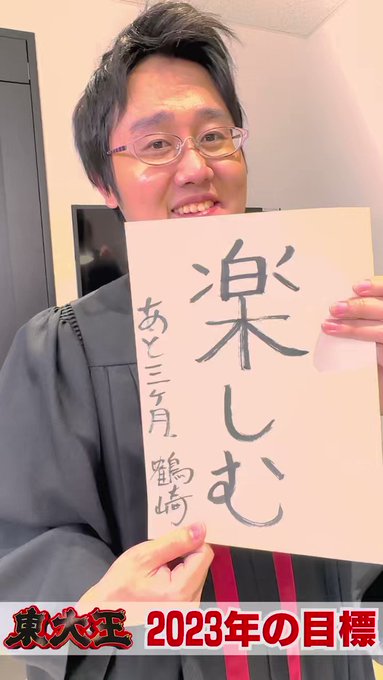 楽しむ
あと三ヶ月、
鶴崎
東大王 2023年の目標